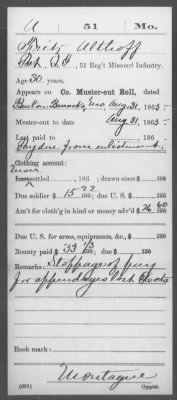 A | 51 | Mo.
Fritz Althoff
Pvt, Co. A, 51 Reg't Missouri Infantry.
Age 30 years.
Appears on Co. Muster-out Roll, dated
Benton Barracks, Mo Aug 31, 1865
Muster-out to date Aug 31, 1865
Last paid to 186
Clothing account:
Never settled , 186 ; drawn since $ 100
Due soldier $ 15 77/100; due U. S. $ 100
Am't for cloth'g in kind or money adv'd $ 26 60/100
Due U. S. for arms, equipments, &c., $ 100
Bounty paid $ 33 1/3/100; due $ 100
Remarks: Stoppage of pay
for appendages
Book mark:
Montague
(861) Copyist.